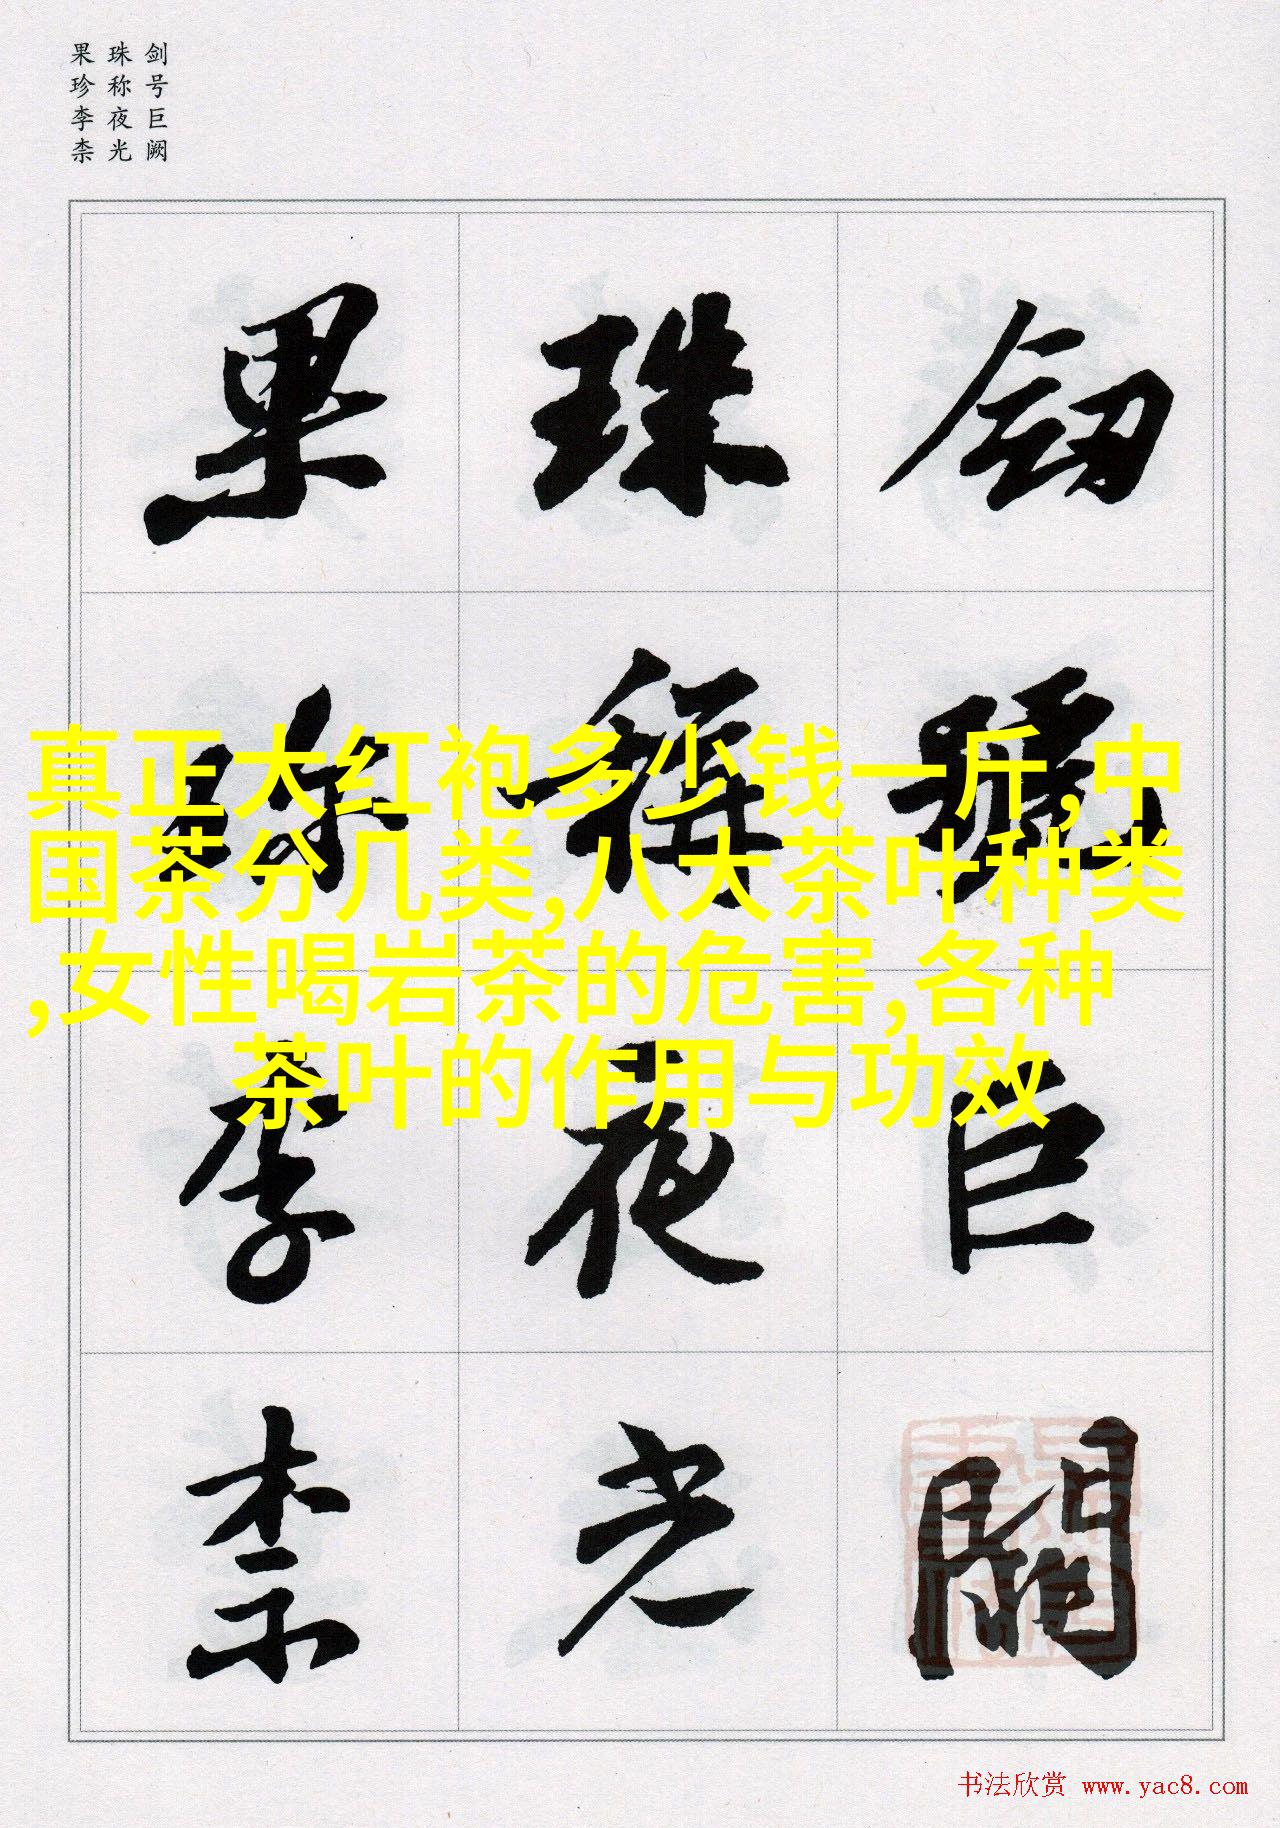 剑号巨阙
珠称夜光
果珍李柰
劍號巨闕
珠稱夜光
果珍李柰
真正大红袍多少钱一斤,中
国茶分几类,八大茶叶种类
,女性喝岩茶的危害,各种
茶叶的作用与功效
书法欣赏 www.yac8.com